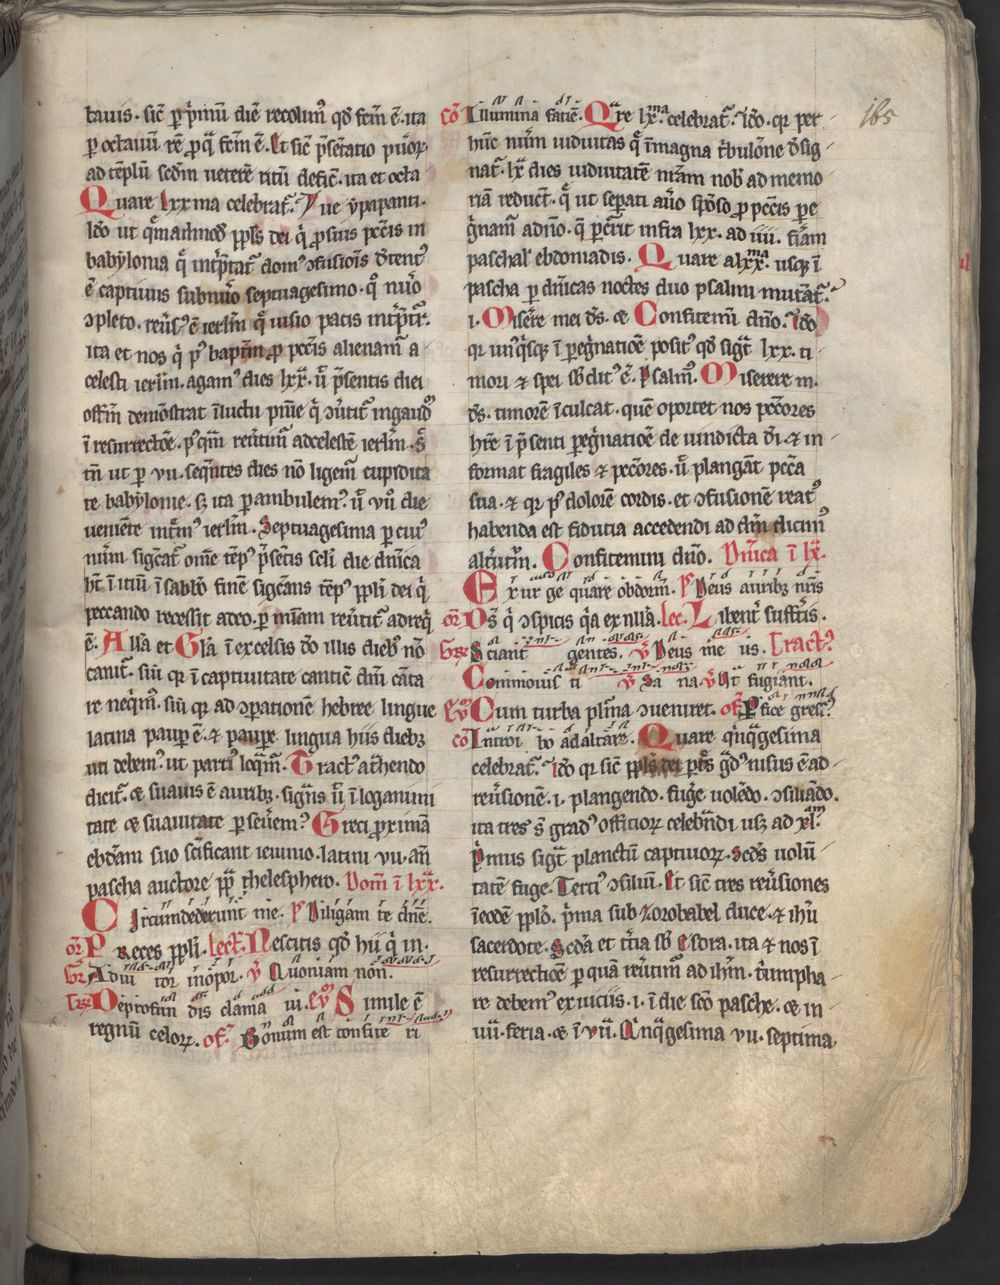 tauus. sic̄ ꝑ p̄mū diē recolim᷒ qd̄ fcm̄ ē. ita
ꝑ octauū rē ꝓ q̄ fcm̄ ē. Et sic̄ p̄sētatio puioꝝ
ad tēplū scd̄m veterē ritū defic̄. ita et octa
Quare lxx ma celebrat᷒.
Iđo ut qm̄admod̄ ppl̄s dei q̄ ꝓ suis pcc̄is in
babẏlonia q̄ int̄p̄tat᷒ dom᷒ ꝯfusiōis d̄tent᷒
ē captiuus sub nūo septuagesimo. q̄ nūo
ꝯpleto. reūs᷒ ē ierl̄m q̄ uisio pacis int̄p̄t᷒.
ita et nos q̄ p᷒ bapt̄m ꝓ pcc̄is alienam᷒ a
celesti ierl̄m. agam᷒ dies lxx̄. ū p̄sentis diei
offm̄ demōstrat ī luctu
ī resurrectōe. p᷒qm̄ reūtim᷒ ad celestē ierl̄m. s̄
tn̄ ut ꝑ vii. seq̄ntes dies nō ligem᷒ cupidita
te babẏlonie. sꝫ ita ꝑambulem᷒. ū vii diē
ueniēte int̄m᷒ ierl̄m. Septuagesima ꝑ cui᷒
nūm sigc̄at᷒ om̄e tēp᷒ p̄sētis scl̄i die dn̄ica
ht̄ ī itiū ī sabb̄o finē sigc̄ans tēp᷒ ppl̄i dei q̄
peccando recessit a deo. ꝑ m̄iam reūtit᷒ ad req̄
ē. Alla et Gl̄a ī excelsis d̄o illis dieb᷒ nō
canit᷒. siū qr ī captiuitate canticū dn̄i cāta
re neq̄m᷒. siū qr ad ꝯparationē hebree lingue
latina paupꝑ ē. ⁊ paupe lingua hiis diebꝫ
uti debem᷒. ut parti᷒ loq̄m᷒. Tract᷒ a t̄hendo
dicit᷒. ⁊ suauis ē auribꝫ. sigīis ū ī loganimi
tate ⁊ suauitate ꝑ seūem᷒. Greci ꝓximā
ebđam suo sc̄ificant ieiunio. latini vii. añ
pascha auctore pp̄ thelesphero. Dom̄ ī lxx̄.
Circumdederunt me. p̄ Diligam te dn̄e.
or̄ Preces ppl̄i. lect᷒. Nescitis qd̄ hii q̄ in.
Gr̄ Adiu tor inōpor. v̄ Quoniam non.
De profun dis clama ui. eu᷒ Simile ē
regnū celoꝝ. of. Bonum est confite ri
cō Illumina faciē. Qr̄e lx̄ ma celebrat᷒. Iđo. qr per
hūc nūm uiduitas q̄ ī magna t̄bulōne d̄sig
nat᷒. lx̄ dies uiduitatē nr̄am nob᷒ ad memo
riā reduc̄t. q̄ ut sepati
ḡnam᷒ a dn̄o. q̄ pc̄rit infra lxx. ad iiii. fīam
paschal᷒ ebdomadis. Quare a lxx̄ ma. usqꝫ ī
pascha ꝑ dn̄icas noctes duo psalmi mutāt᷒.
i. Misēre mei ds̄. ⁊ Confitemī dn̄o. Iđo
qr un᷒q̄sqꝫ ī peg̓natiōe posit᷒ qd̄ sigt᷒ lxx. ti
mori ⁊ spei sb̄dit᷒ ē. Psalm᷒. Miserere m.
ds̄. timorē īculcat. quē oportet nos pcc̄ores
hr̄e ī p̄senti peg̓natiōe de uindicta d̄i. ⁊ in
format fragiles ⁊ pcc̄ores. ū plangāt pcc̄a
sua. ⁊ qr p᷒ dolorē cordis. et ꝯfusionē reat᷒
habenda est fidutia accedendi ad dn̄m
Confitemini dn̄o. Dn̄ica ī lx̄.
Exur ge quare obdorm̄. p̄ Deus auribꝫ nr̄is
or̄ Ds̄ q̄ ꝯspicis q̄a ex nulla. lec. Libent᷒ sufft̄is.
Sciant gentes. v̄ Deus me us. Tract᷒
Commouis ti v̄ Sa na v̄ Ut fugiant.
eu᷒ Cum turba pl̄ima ꝯueniret. of. Pfice gress᷒
cō Introi bo ad altare. Quare q̄nq̄gesima
celebrat᷒. Iđo qr sic̄ ppl̄s dei
reūsionē. i. plangendo. fuge uolēdo. ꝯsiliādo.
ita tres s̄ grad᷒ officioꝝ celebn̄di usꝫ ad xl ām.
p̄mus sigt᷒ planctū captiuoꝝ. Scds᷒ uolū
tatē fuge. Terti᷒ ꝯsiliū. Et sic̄ tres reūsiones
ī eodē ppl̄o. p̄ma sub zorobabel duce. ⁊ ihū
sacerdote. Scđa et t̄tia sb̄ Esdra. ita ⁊ nos ī
resurrectiōe ꝑ quā reūtim᷒ ad ihr̄m. t̄umpha
re debem᷒ ex uiciis. i. ī die scō pasche. ⁊ in
iiii. feria. ⁊ ī vii. Quinq̄gesima vii. septima
165